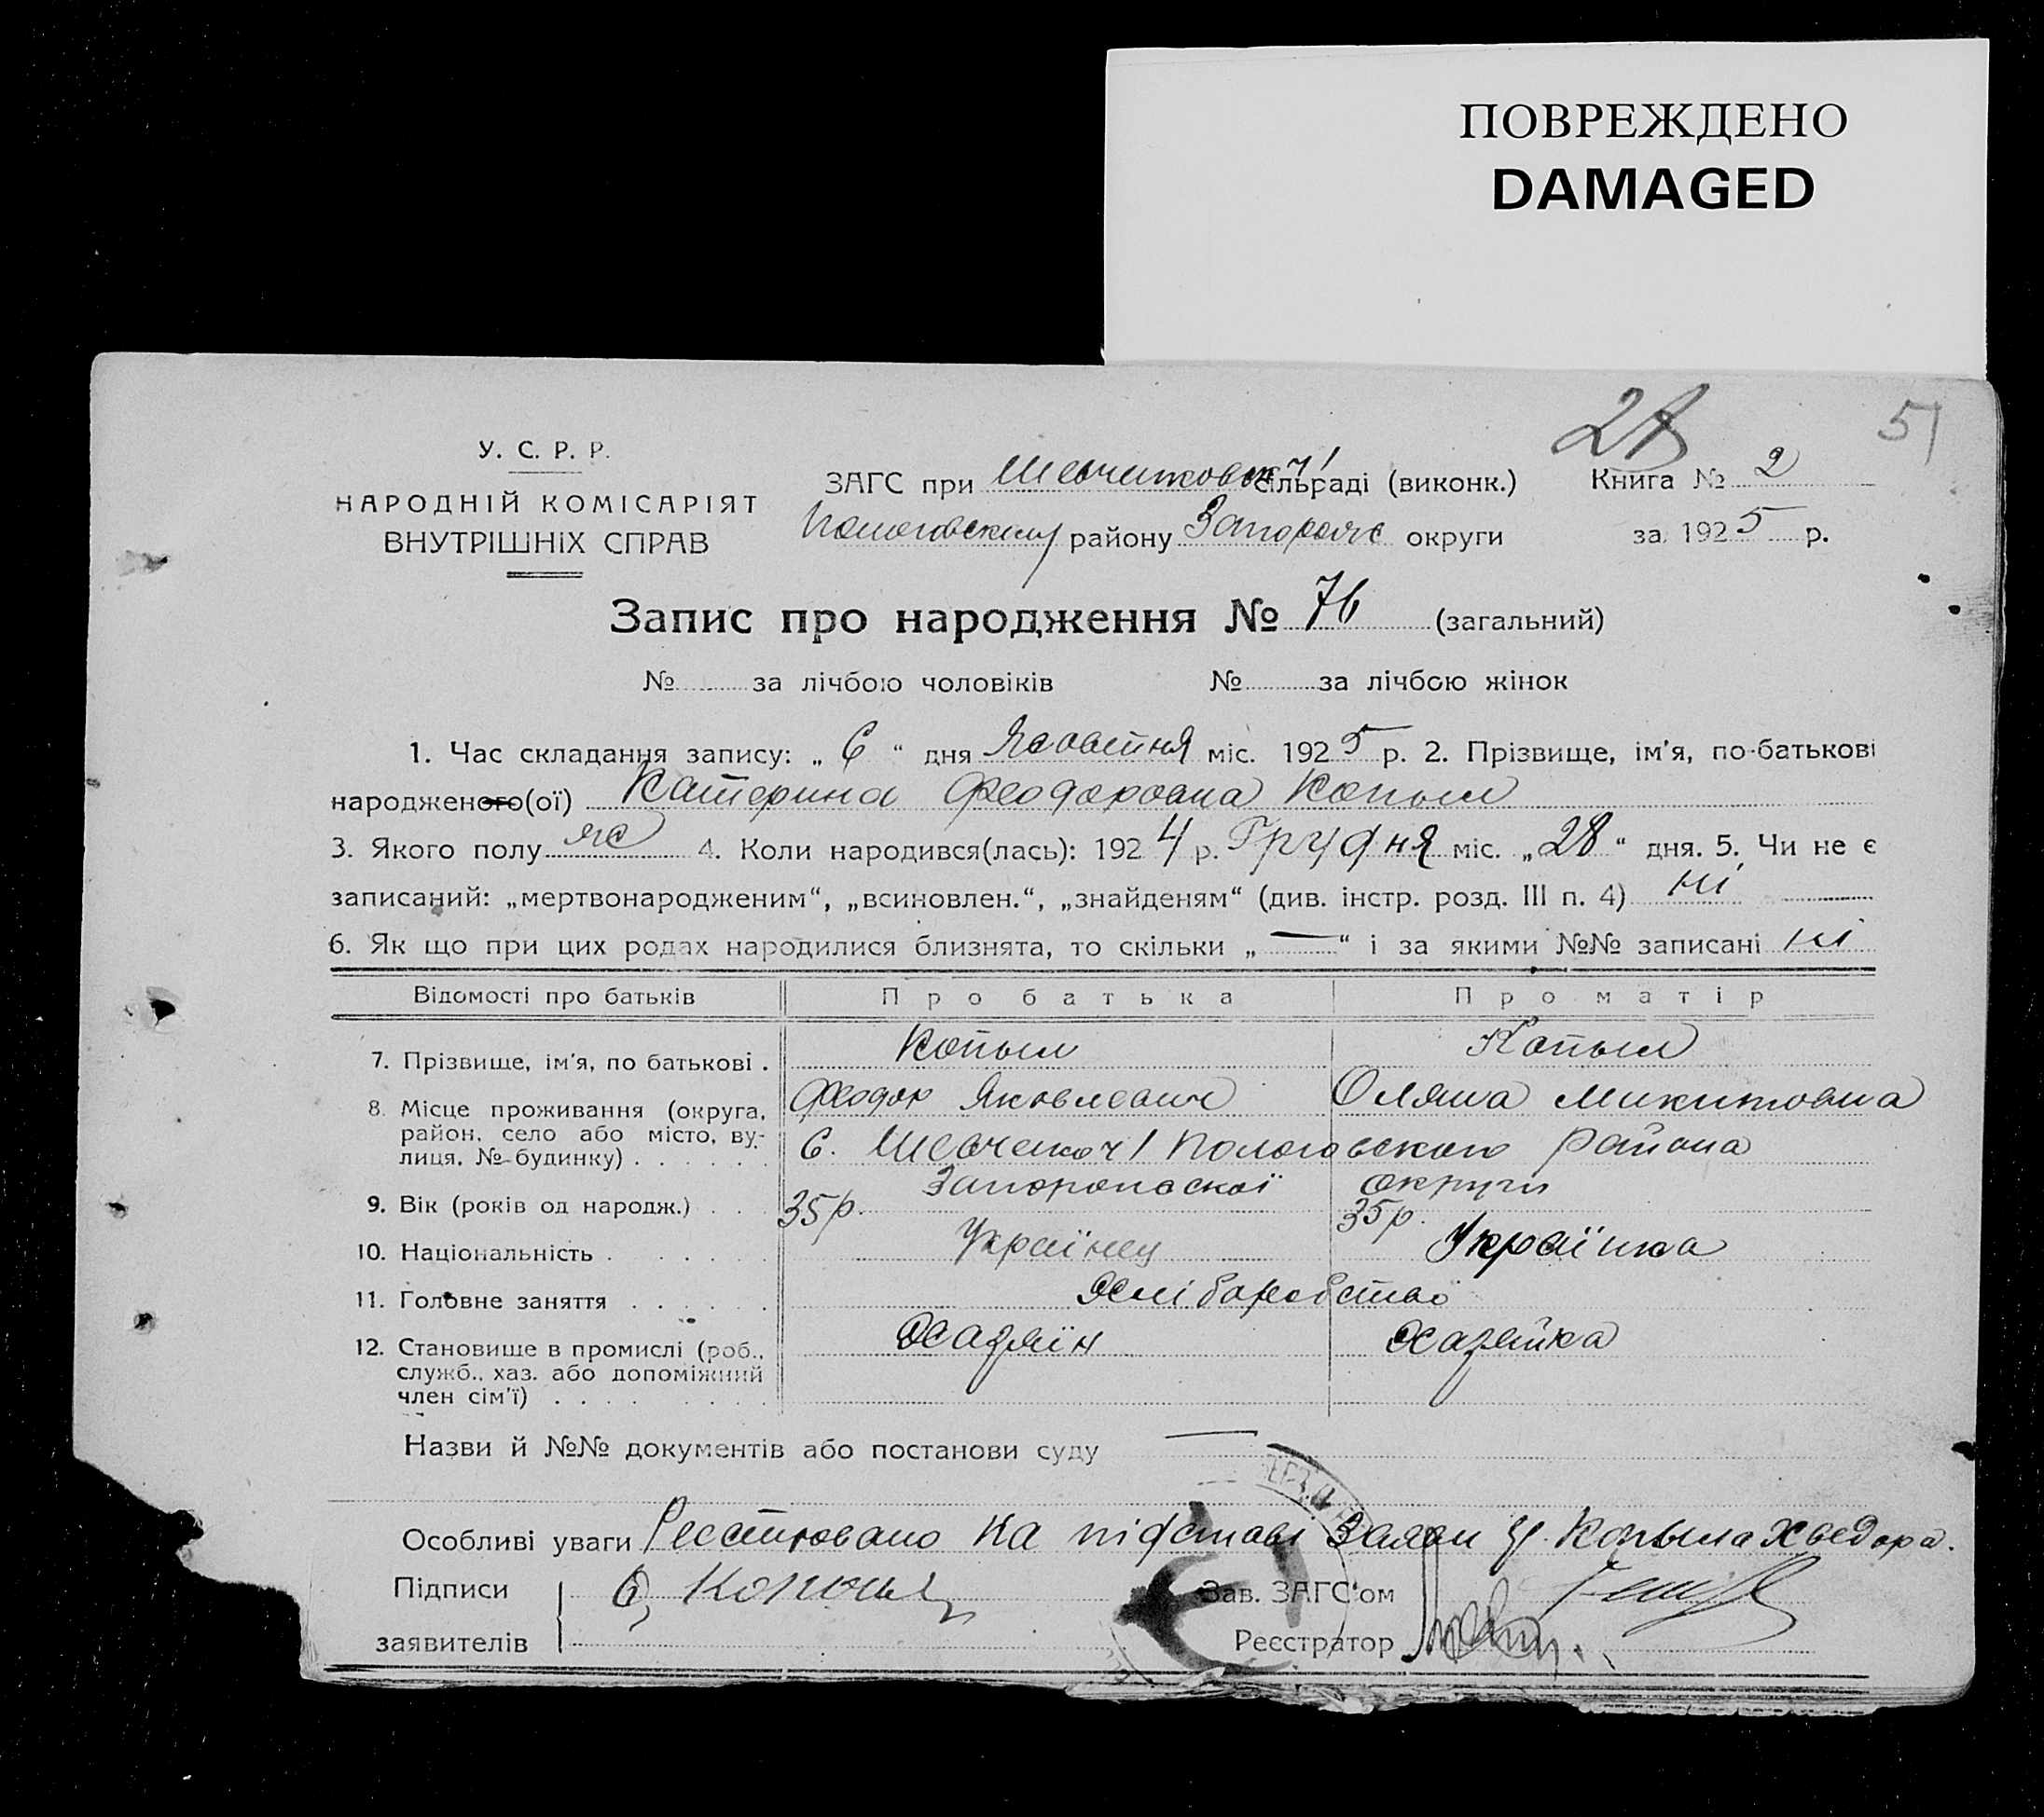 ПОВРЕЖДЕНО
DAMAGED
28 51
У. С. Р. Р.
НАРОДНІЙ КОМІСАРІЯТ
ВНУТРІШНІХ СПРАВ
ЗАГС при сільраді (виконк.) Книга № 2
району Запорожс округи за 1925 р.
Запис про народження № 76 (загальний)
№ за лічбою чоловіків № за лічбою жінок
1. Час складання запису: „ 6 “ дня Жовтня міс. 1925 р. 2. Прізвище, ім'я, по-батькові
народженого(ої) Катерина Феодоровна Копыл
3. Якого полу ж 4. Коли народився(лась): 1924 р. Грудня міс. „28“ дня. 5. Чи не є
записаний: „мертвонародженим“, „всиновлен.“, „знайденям“ (див. інстр. розд. III п. 4) ні
6. Як що при цих родах народилися близнята, то скільки „—“ і за якими №№ записані ні
Відомості про батьків Про батька Про матір
7. Прізвище, ім'я, по батькові . Копыл Копыл
Феодор Яковлевич Оляна Микитовна
8. Місце проживання (округа, район, село або місто, ву-
лиця, № будинку) . . . . . . с. Пологовского района
округи
9. Вік (років од народж.) . . . 35 р. 35 р.
10. Національність . . . . . Українец Українка
11. Головне заняття . . . . . Хліборобство
12. Становище в промислі (роб., Хазяїн Хазяйка
служб., хаз. або допоміжний
член сім'ї) . . . . . . . .
Назви й №№ документів або постанови суду —
Особливі уваги на підставі Заяви гр. Копыла Хведора.
Підписи Зав. ЗАГС'ом
заявителів Реєстратор